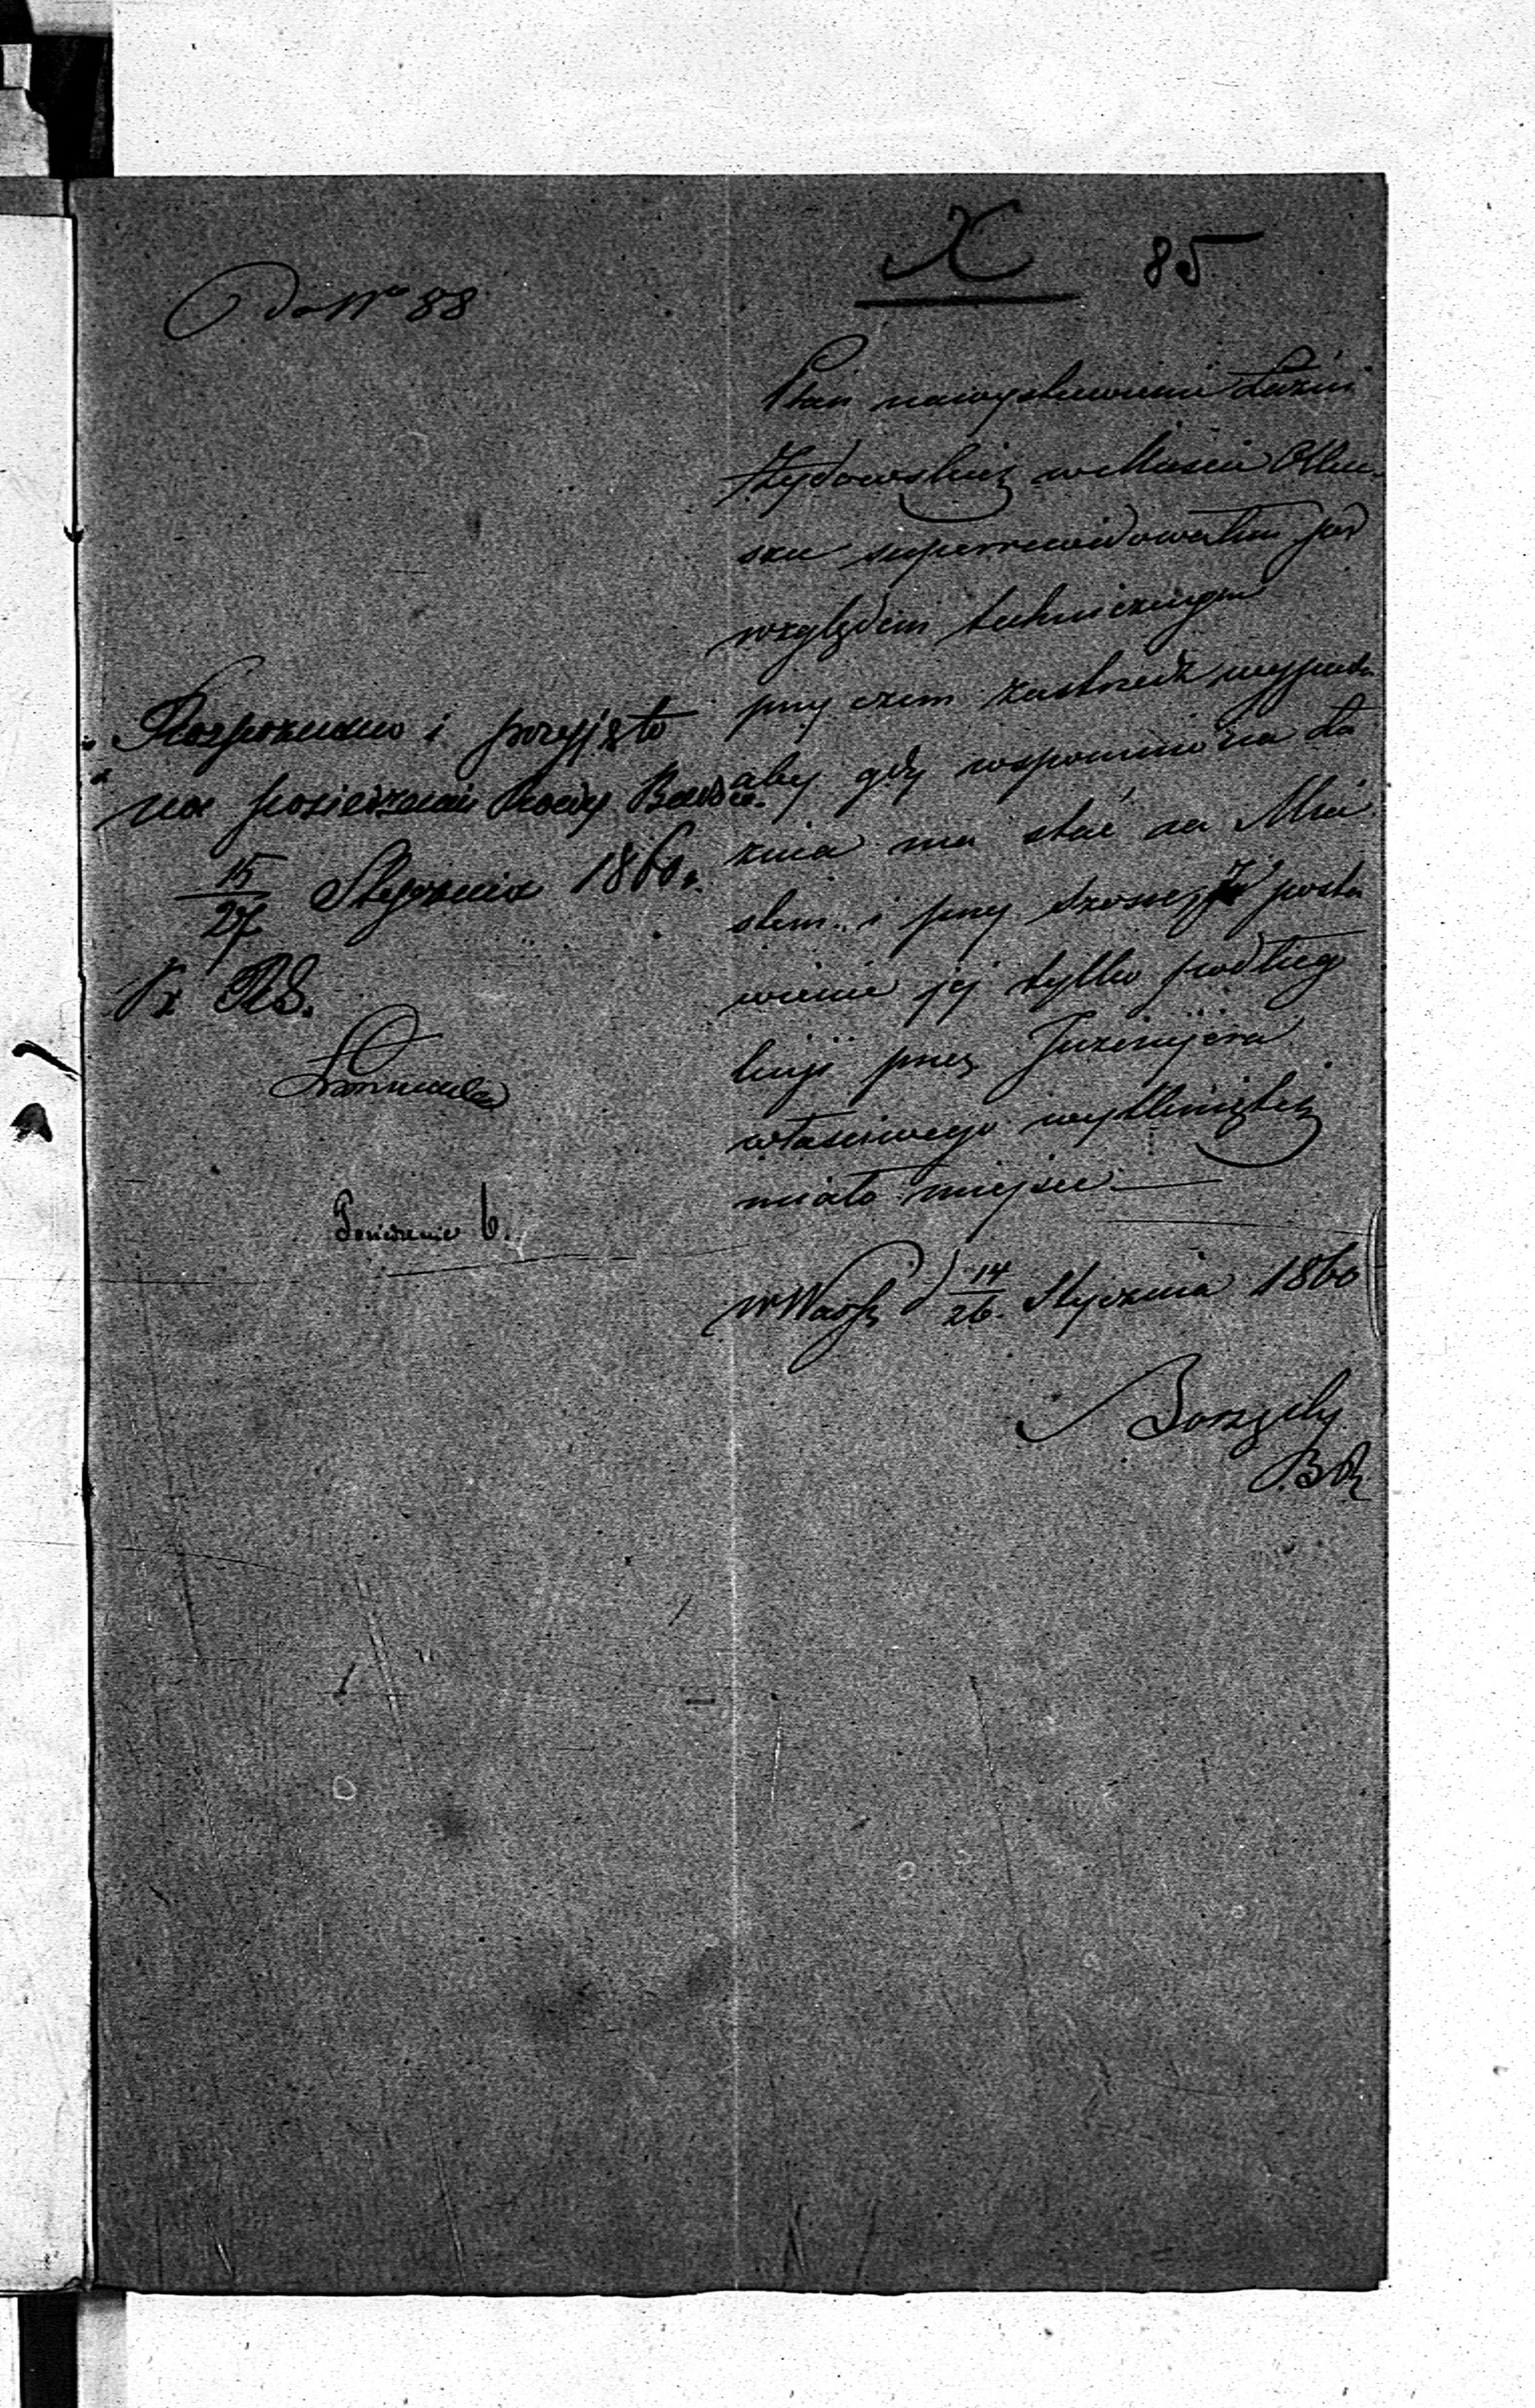 X 85
do No 88
Plan na wystawienie Łaźni
Żydowskiej w Mieście Olku-
szu superrewidowałem pod
względem technicznym
przyczem zastrzedz wypada
aby gdy wspomniona Ła
znia ma stać za Mia
stem i przy szosie posta
wienie jej tylko podług
linji przez Inżenijera
właściwego wytkniętej
miało miejsce.
w Warsz d 14/26 Stycznia 1860
B R
Rozpoznano i przyjęto
na posiedzeniu Rady Budow.
15/27 Stycznia 1860 r.
Posiedzenie 6.